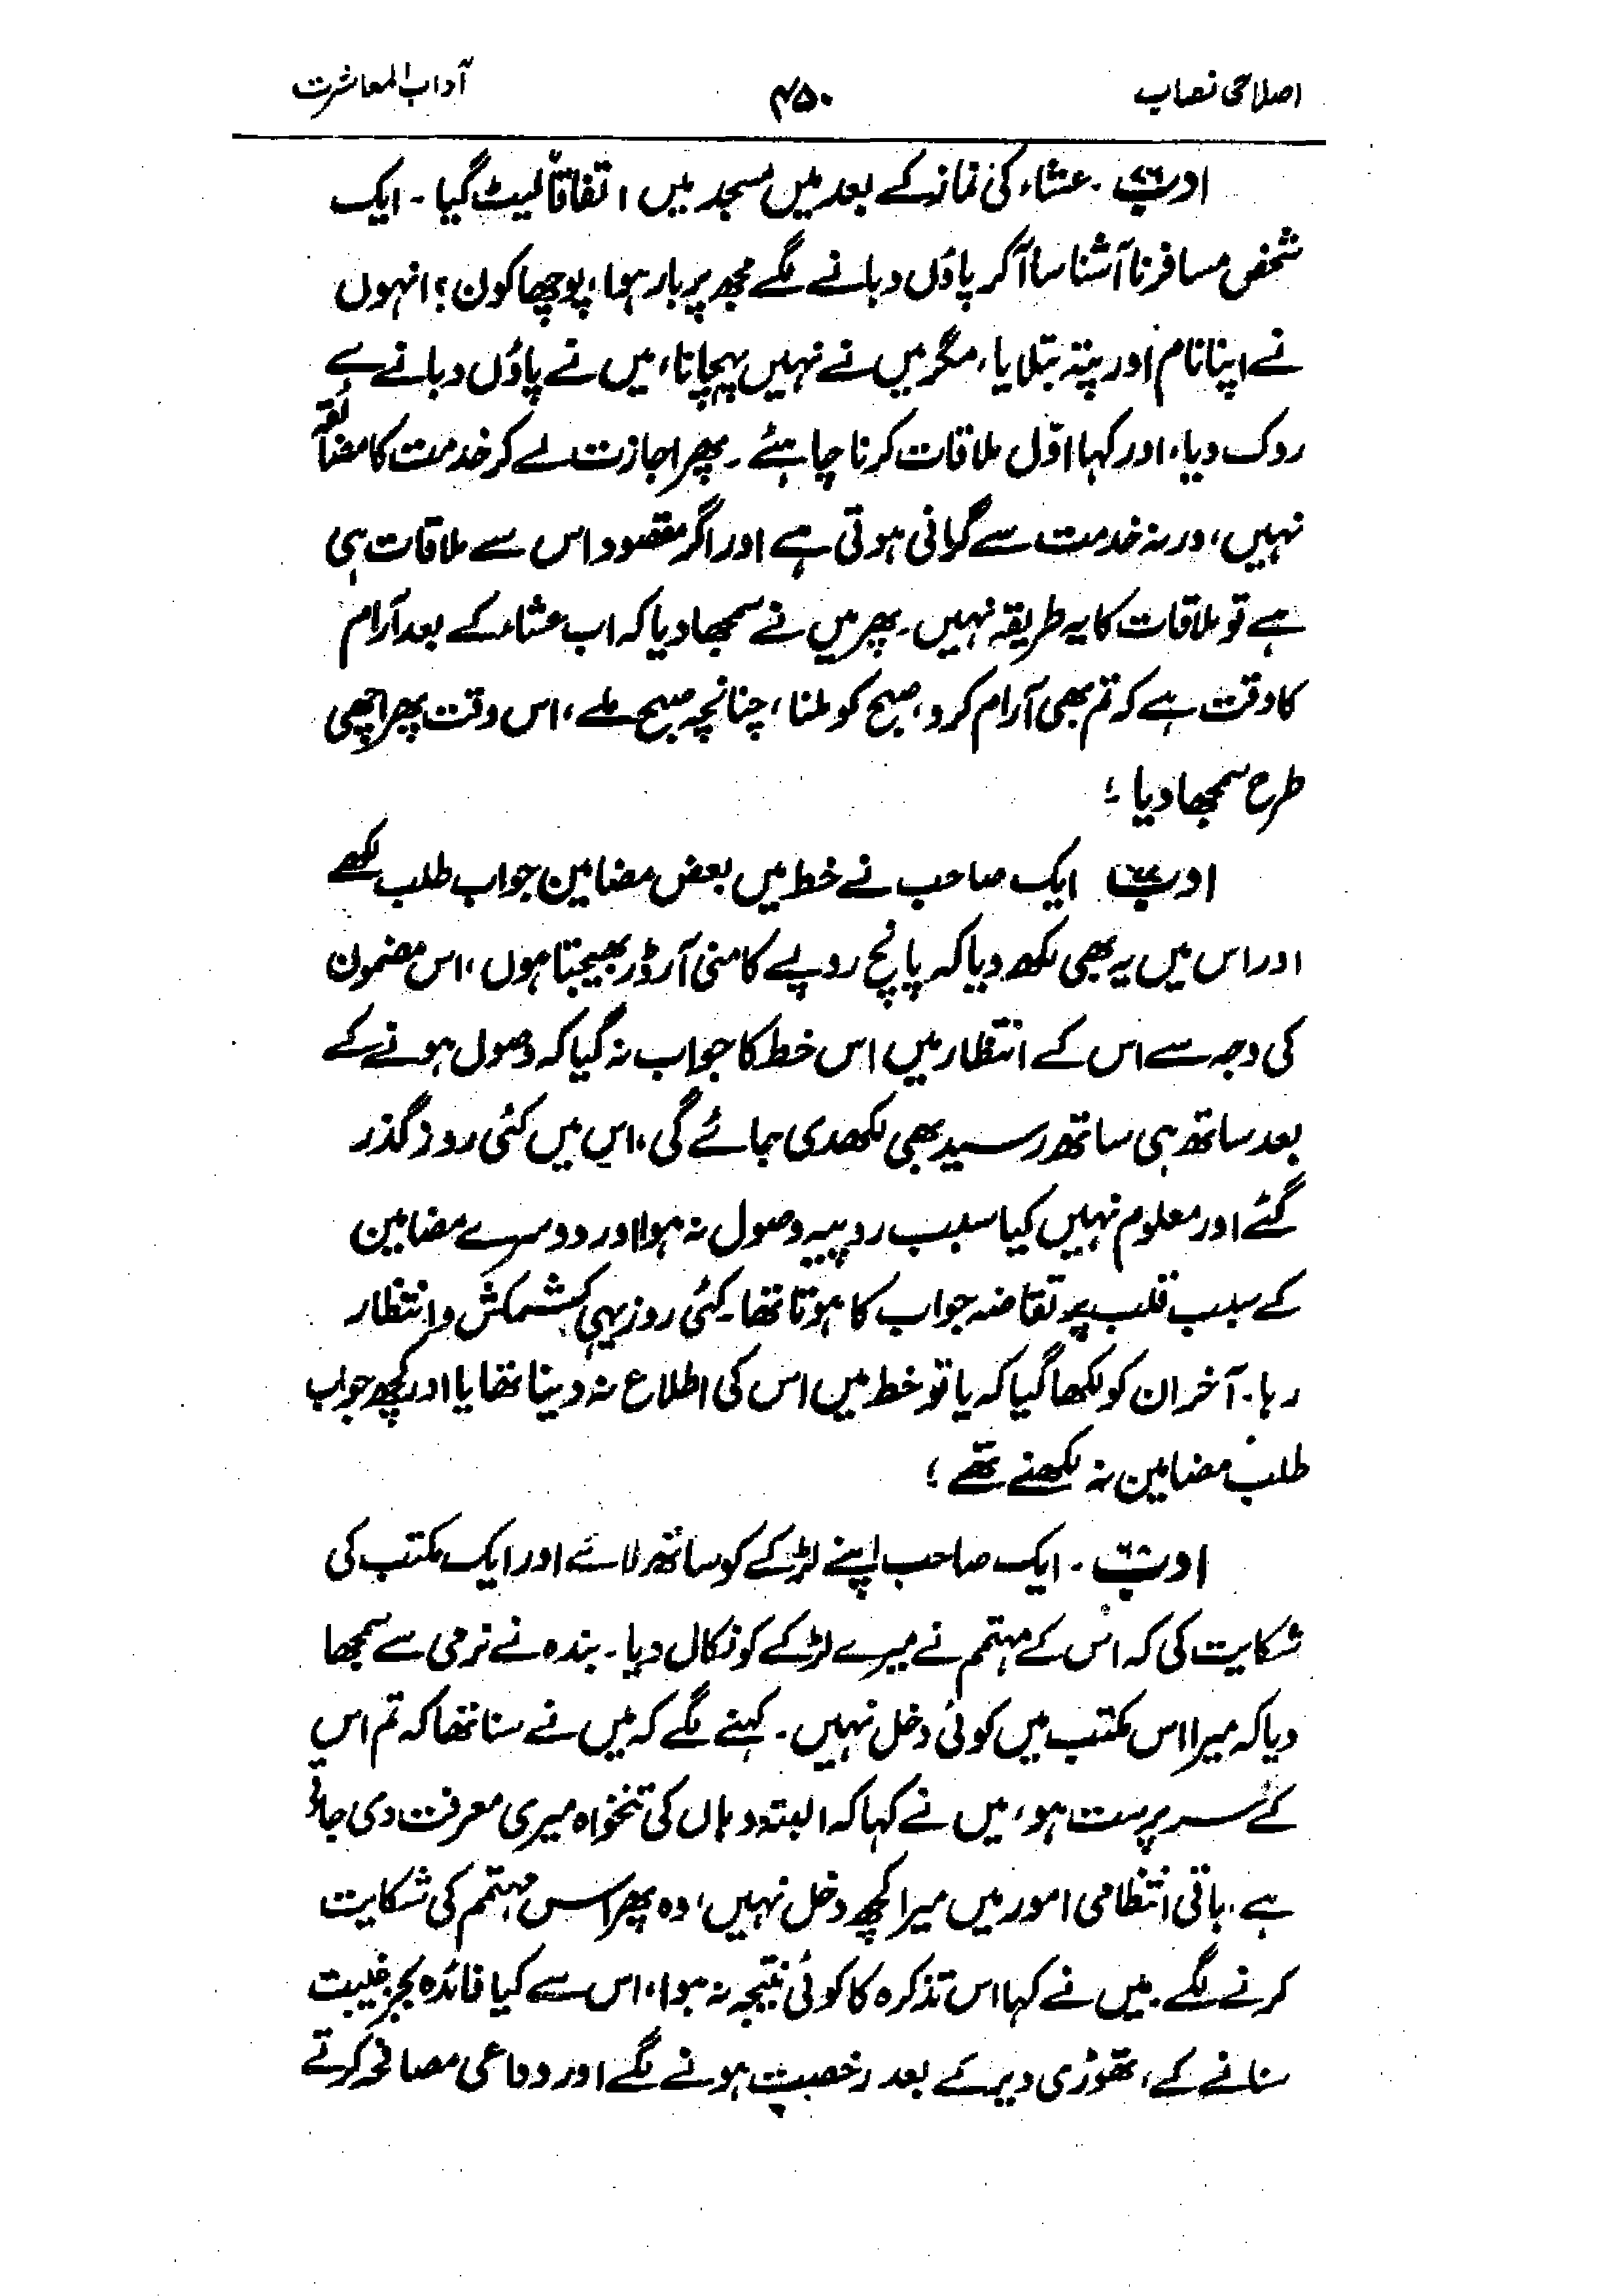 اصلاحی نصاب ۴۵۰ آداب المعاشرت
ادب ۔ عشاء کی نماز کے بعد میں مسجد میں اتفاقاً لیٹ گیا ۔ ایک
شخص مسافر ناآشنا سا آکر پاؤں دبانے لگے مجھ پر بار ہوا، پوچھا کون؟ انہوں
نے اپنا نام اور پتہ بتلایا، مگر میں نے نہیں پہچانا، میں نے پاؤں دبانے سے
روک دیا، اور کہا اوّل ملاقات کرنا چاہئے ۔ پھر اجازت لے کر خدمت کا مضائقہ
نہیں، ورنہ خدمت سے گرانی ہوتی ہے اور اگر مقصود اس سے ملاقات ہی
ہے تو ملاقات کا یہ طریقہ نہیں ۔ پھر میں نے سمجھا دیا کہ اب عشاء کے بعد آرام
کا وقت ہے کہ تم بھی آرام کرو، صبح کو ملنا، چنانچہ صبح ملے، اس وقت پھر اچھی
طرح سمجھا دیا ؛
ادب ۶۷ ایک صاحب نے خط میں بعض مضامین جواب طلب لکھے
اور اس میں یہ بھی لکھ دیا کہ پانچ روپے کا منی آرڈر بھیجتا ہوں، اس مضمون
کی وجہ سے اس کے انتظار میں اس خط کا جواب نہ گیا کہ وصول ہونے کے
بعد ساتھ ہی ساتھ رسید بھی لکھدی جائے گی، اس میں کئی روز گذر
گئے اور معلوم نہیں کیا سبب روپیہ وصول نہ ہوا اور دوسرے مضامین
کے سبب قلب پر تقاضہ جواب کا ہوتا تھا ۔ کئی روز یہی کشمکش و انتظار
رہا ۔ آخر ان کو لکھا گیا کہ یا تو خط میں اس کی اطلاع نہ دینا تھا یا اور کچھ جواب
طلب مضامین نہ لکھنے تھے ؛
ادب ۶۸ ۔ ایک صاحب اپنے لڑکے کو ساتھ لائے اور ایک مکتب کی
شکایت کی کہ اس کے مہتمم نے میرے لڑکے کو نکال دیا ۔ بندہ نے نرمی سے سمجھا
دیا کہ میرا اس مکتب میں کوئی دخل نہیں ۔ کہنے لگے کہ میں نے سنا تھا کہ تم اس
کے سرپرست ہو، میں نے کہا کہ البتہ وہاں کی تنخواہ میری معرفت دی جاتی
ہے، باقی انتظامی امور میں میرا کچھ دخل نہیں، وہ پھر اس مہتمم کی شکایت
کرنے لگے، میں نے کہا اس تذکرہ کا کوئی نتیجہ نہ ہوا، اس سے کیا فائدہ بجز غیبت
سنانے کے، تھوڑی دیر کے بعد رخصت ہونے لگے اور وداعی مصافحہ کرتے